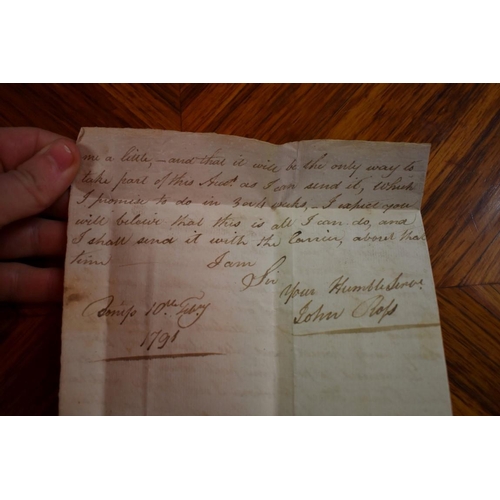 me a little, – and that it will be the only way to
take part of this Acco.t as I can send it, Which
I promise to do in 3 or 4 weeks, – I expect you
will beleive that this is all I can do, and
I shall send it with the Carrier, about that
time I am
Sir
Your Humble Serv.t
10th Feby John Ross
1791